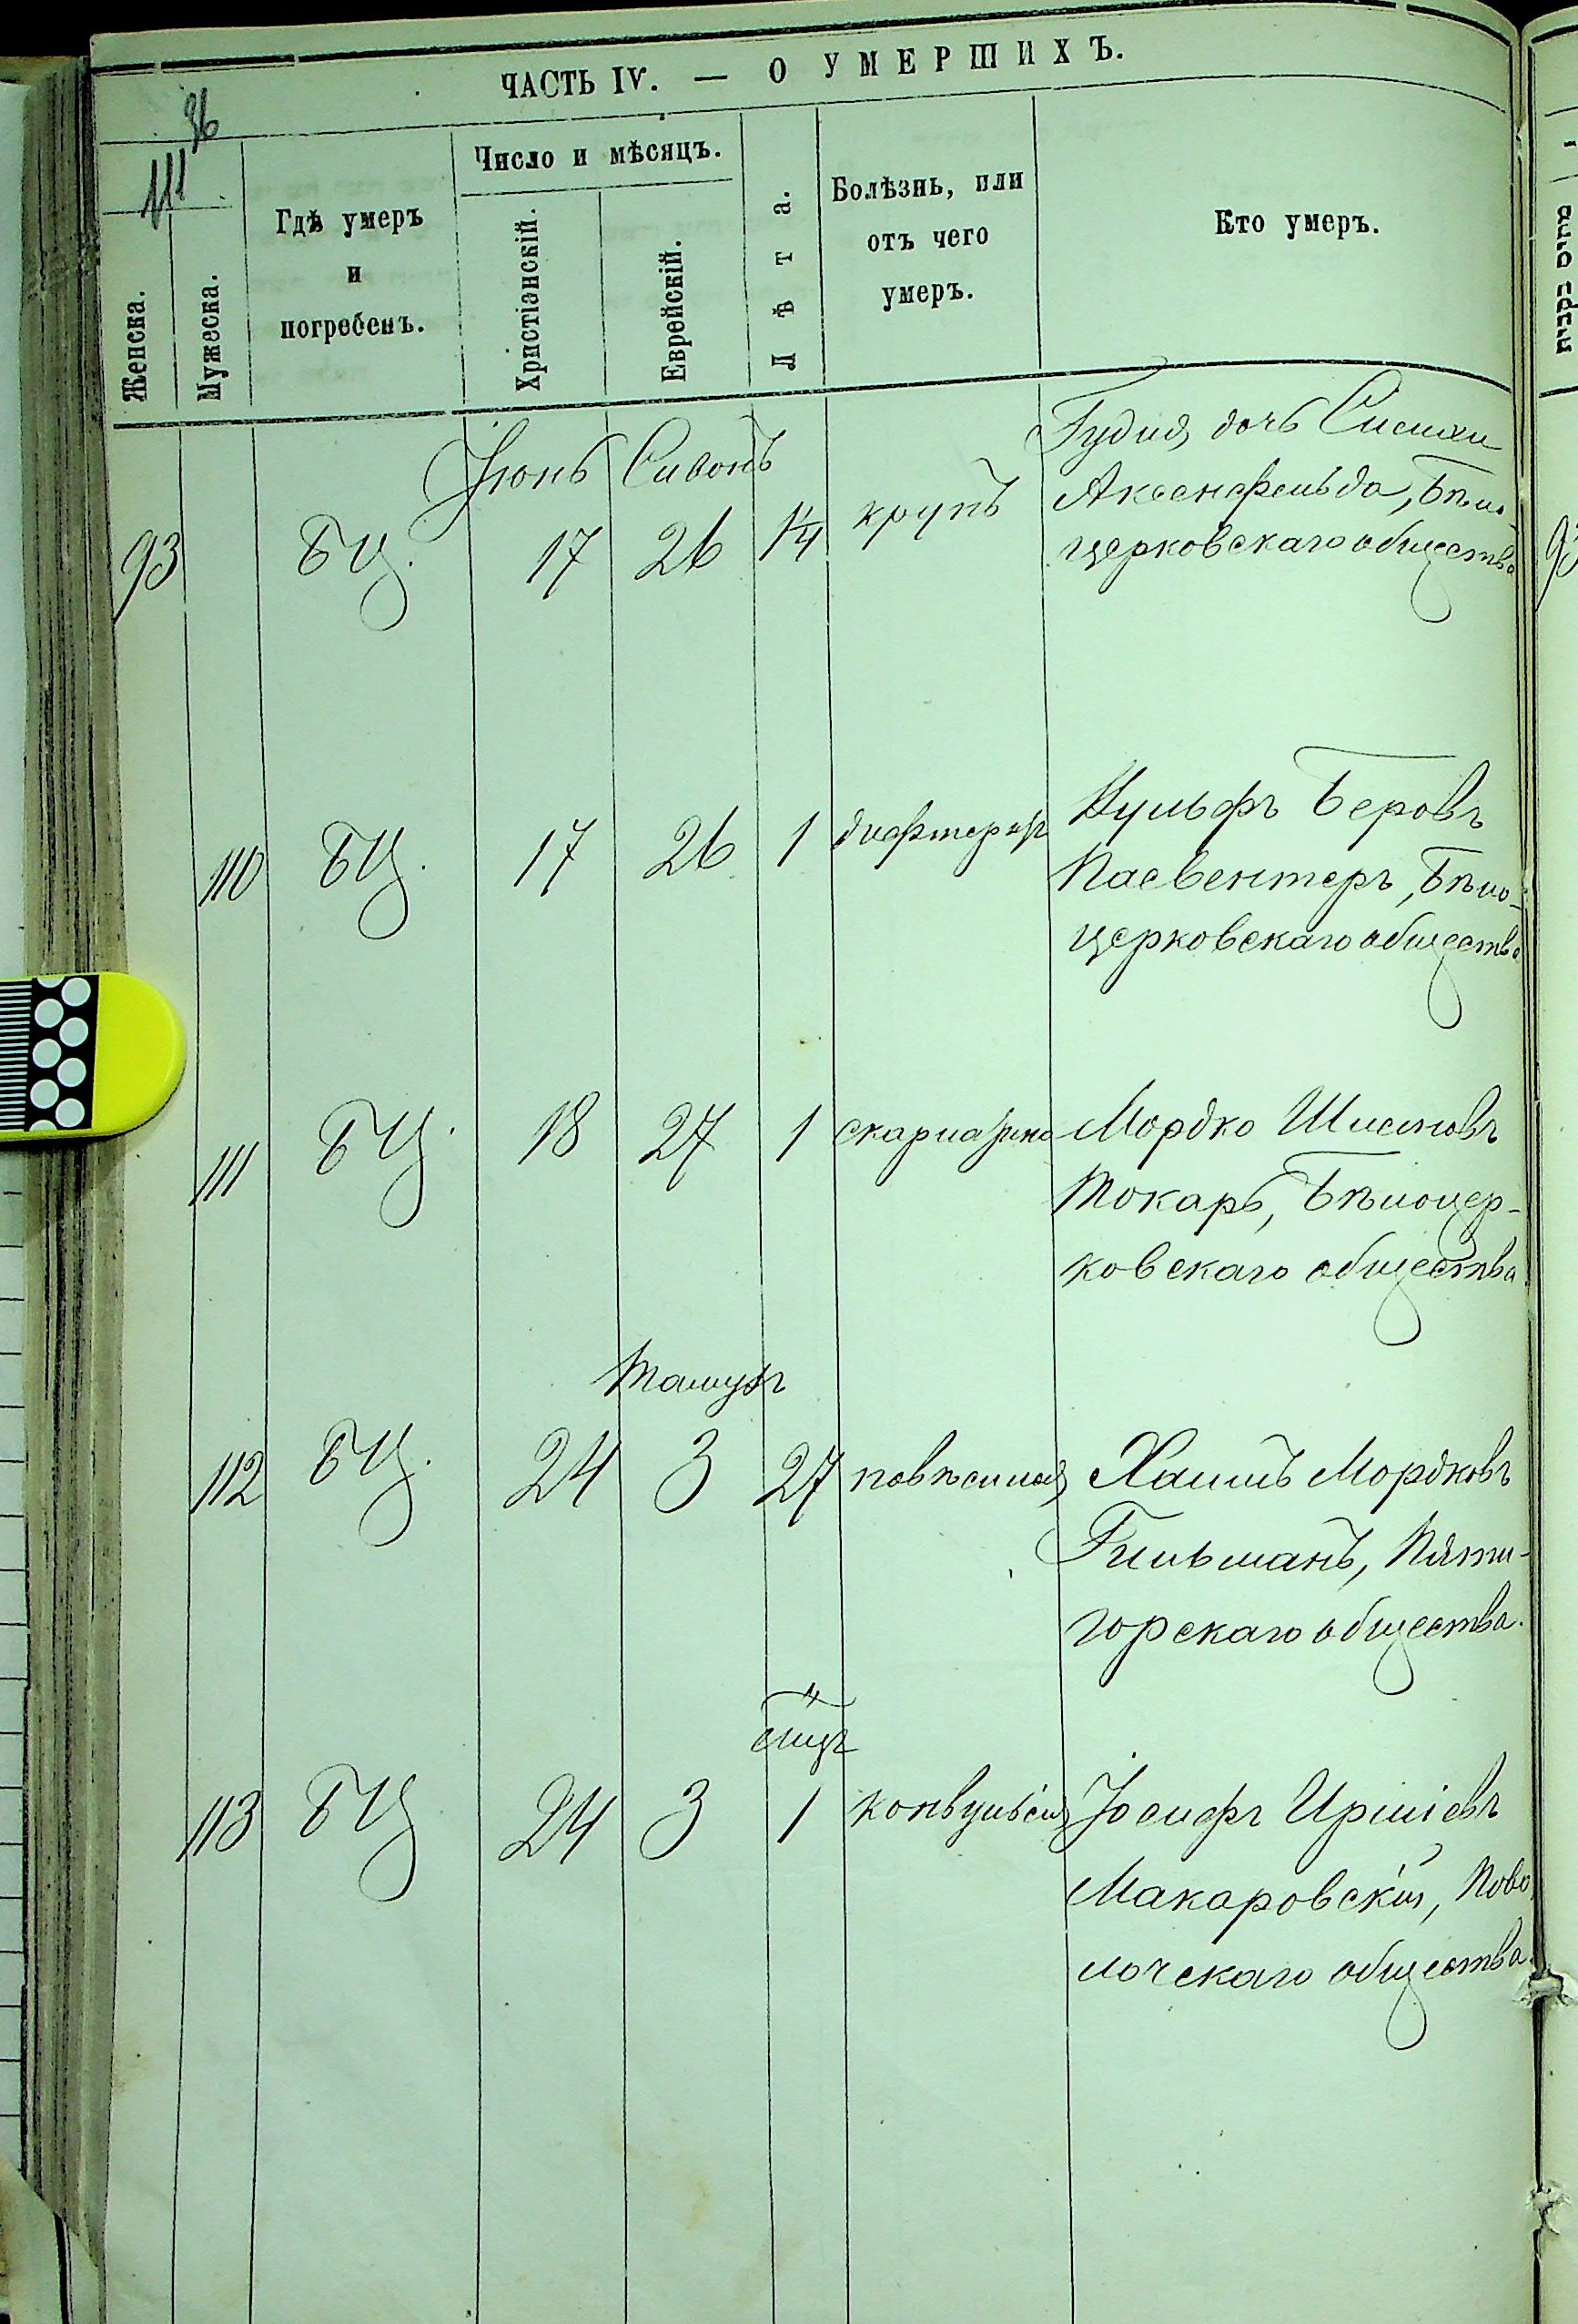 ЧАСТЬ IV. — О УМЕРШИХЪ.
36
111
Женска.
Мужеска.
Гдѣ умеръ
и
погребенъ.
Число и мѣсяцъ.
Христіанскій.
Еврейскій.
Лѣта.
Болѣзнь, или
отъ чего
умеръ.
Кто умеръ.
Іюнь Сивонъ
93 БЦ. 17 26 1¼ крупъ
дочь
Аксенфельда, Бѣло-
церковскаго общества
110 БЦ. 17 26 1 дифтеритъ
Вульфъ Беровъ
Пасвентеръ, Бѣло-
церковскаго общества
111 БЦ. 18 27 1 скарлатина
Мордко
Токарь, Бѣлоцер-
ковскаго общества
Тамузъ
112 БЦ. 24 3 27 повѣсился
Хаимъ Мордковъ
Гильманъ, Пяти-
горскаго общества.
мцъ
113 БЦ 24 3 1 конвульсія
Іосифъ Иршіевъ
Макаровскій, Паво
лочскаго общества.
93